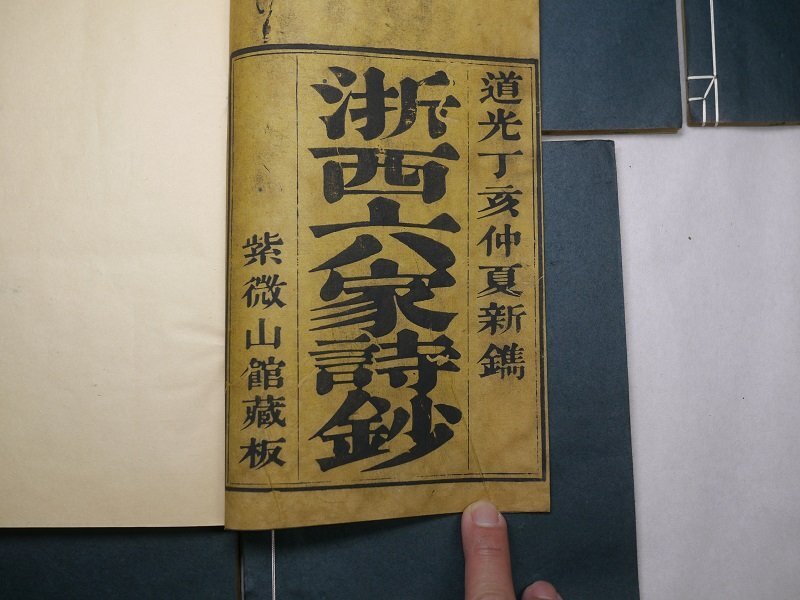 道光丁亥仲夏新鐫
浙西六家詩鈔
紫微山館藏板